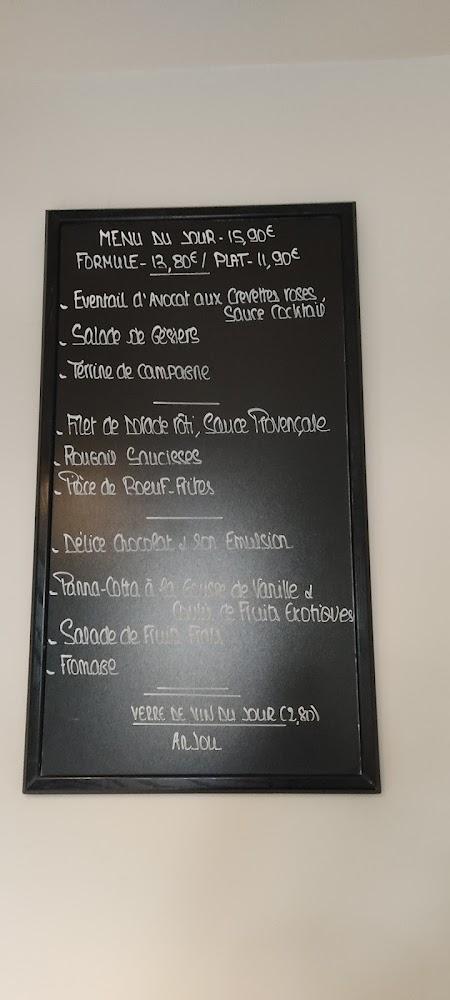 MENU DU JOUR - 15,90€
FORMULE - 13,80€ / PLAT - 11,90€
- Eventail d'Avocat aux Crevettes roses,
Sauce Cocktail
- Salade de Gésiers
- Terrine de Campagne
- Filet de Dorade rôti, Sauce Provençale
- Rougail Saucisses
- Pièce de Boeuf-Frites
- Délice Chocolat & son Emulsion
- Panna-Cotta à la Gousse de Vanille &
Coulis de Fruits Exotiques
- Salade de Fruits Frais
- Fromage
VERRE DE VIN DU JOUR (2,80)
ANJOU